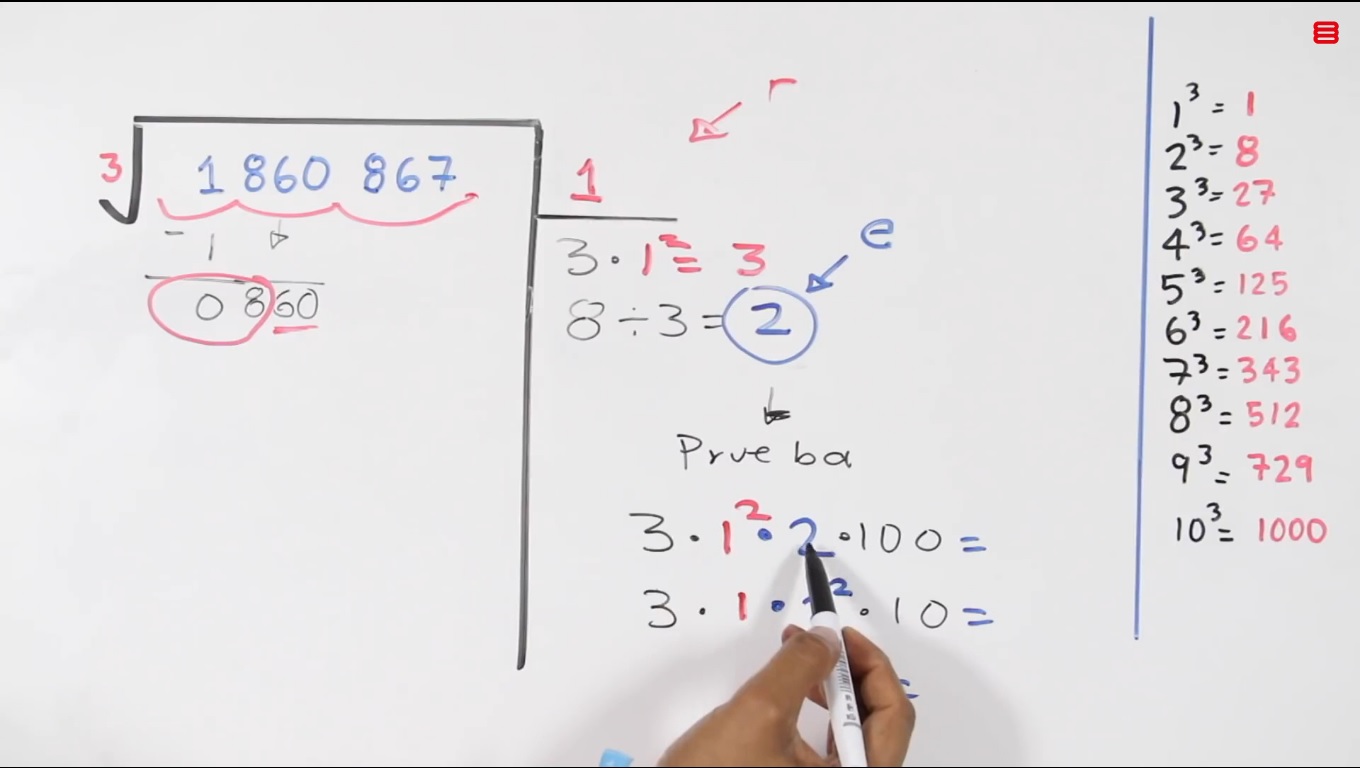 r
3 √ 1 860 867 1
- 1
0 860
3 · 1² = 3
e
8 ÷ 3 = 2
Prueba
3 · 1² · 2 · 100 =
3 · 1 · ² · 10 =
=
1³ = 1
2³ = 8
3³ = 27
4³ = 64
5³ = 125
6³ = 216
7³ = 343
8³ = 512
9³ = 729
10³ = 1000